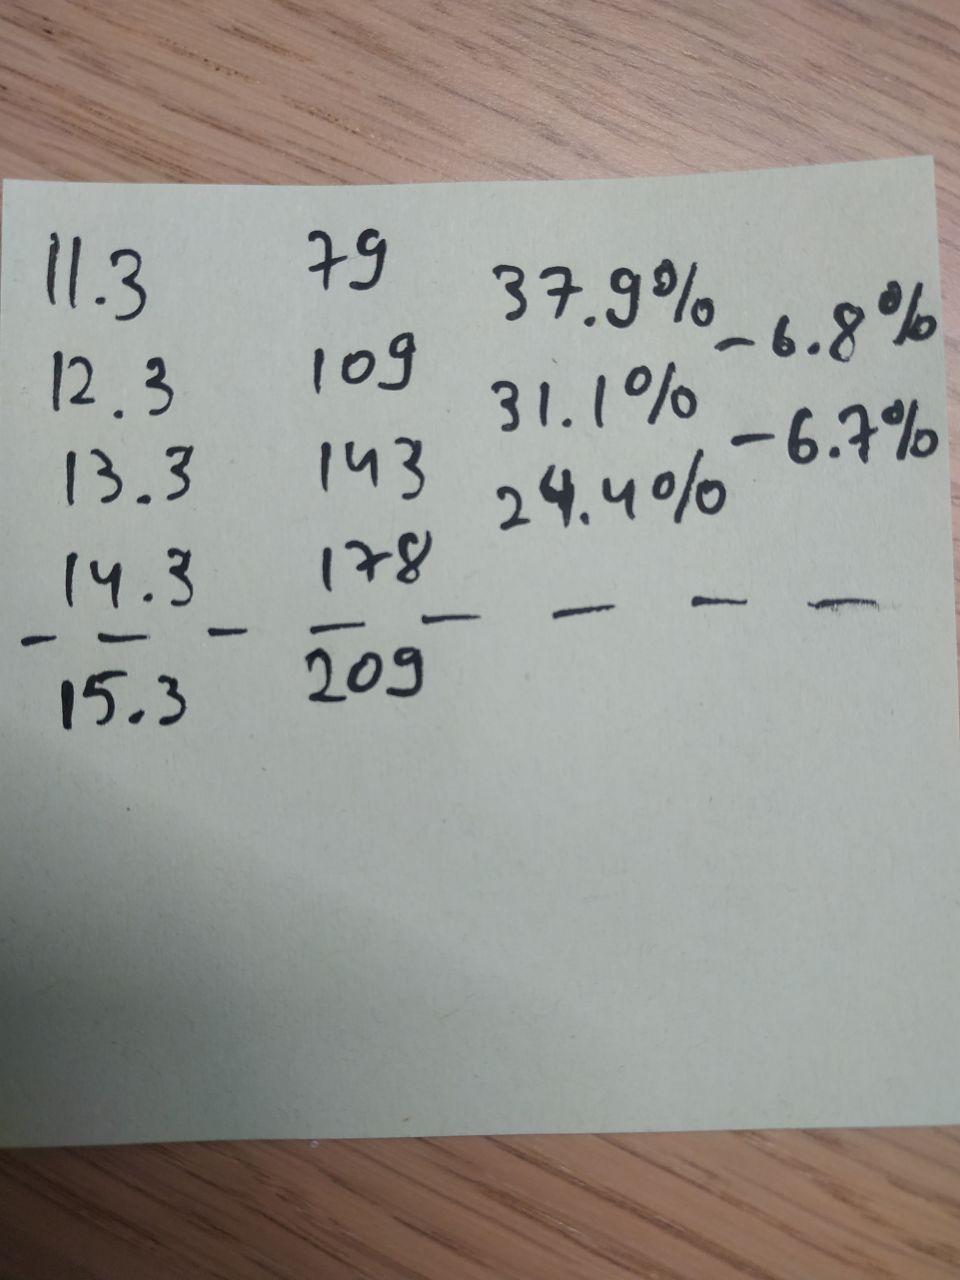 11.3 79
37.9% -6.8%
12.3 109
31.1% -6.7%
13.3 143
24.4%
14.3 178
- - - - - - - -
15.3 209